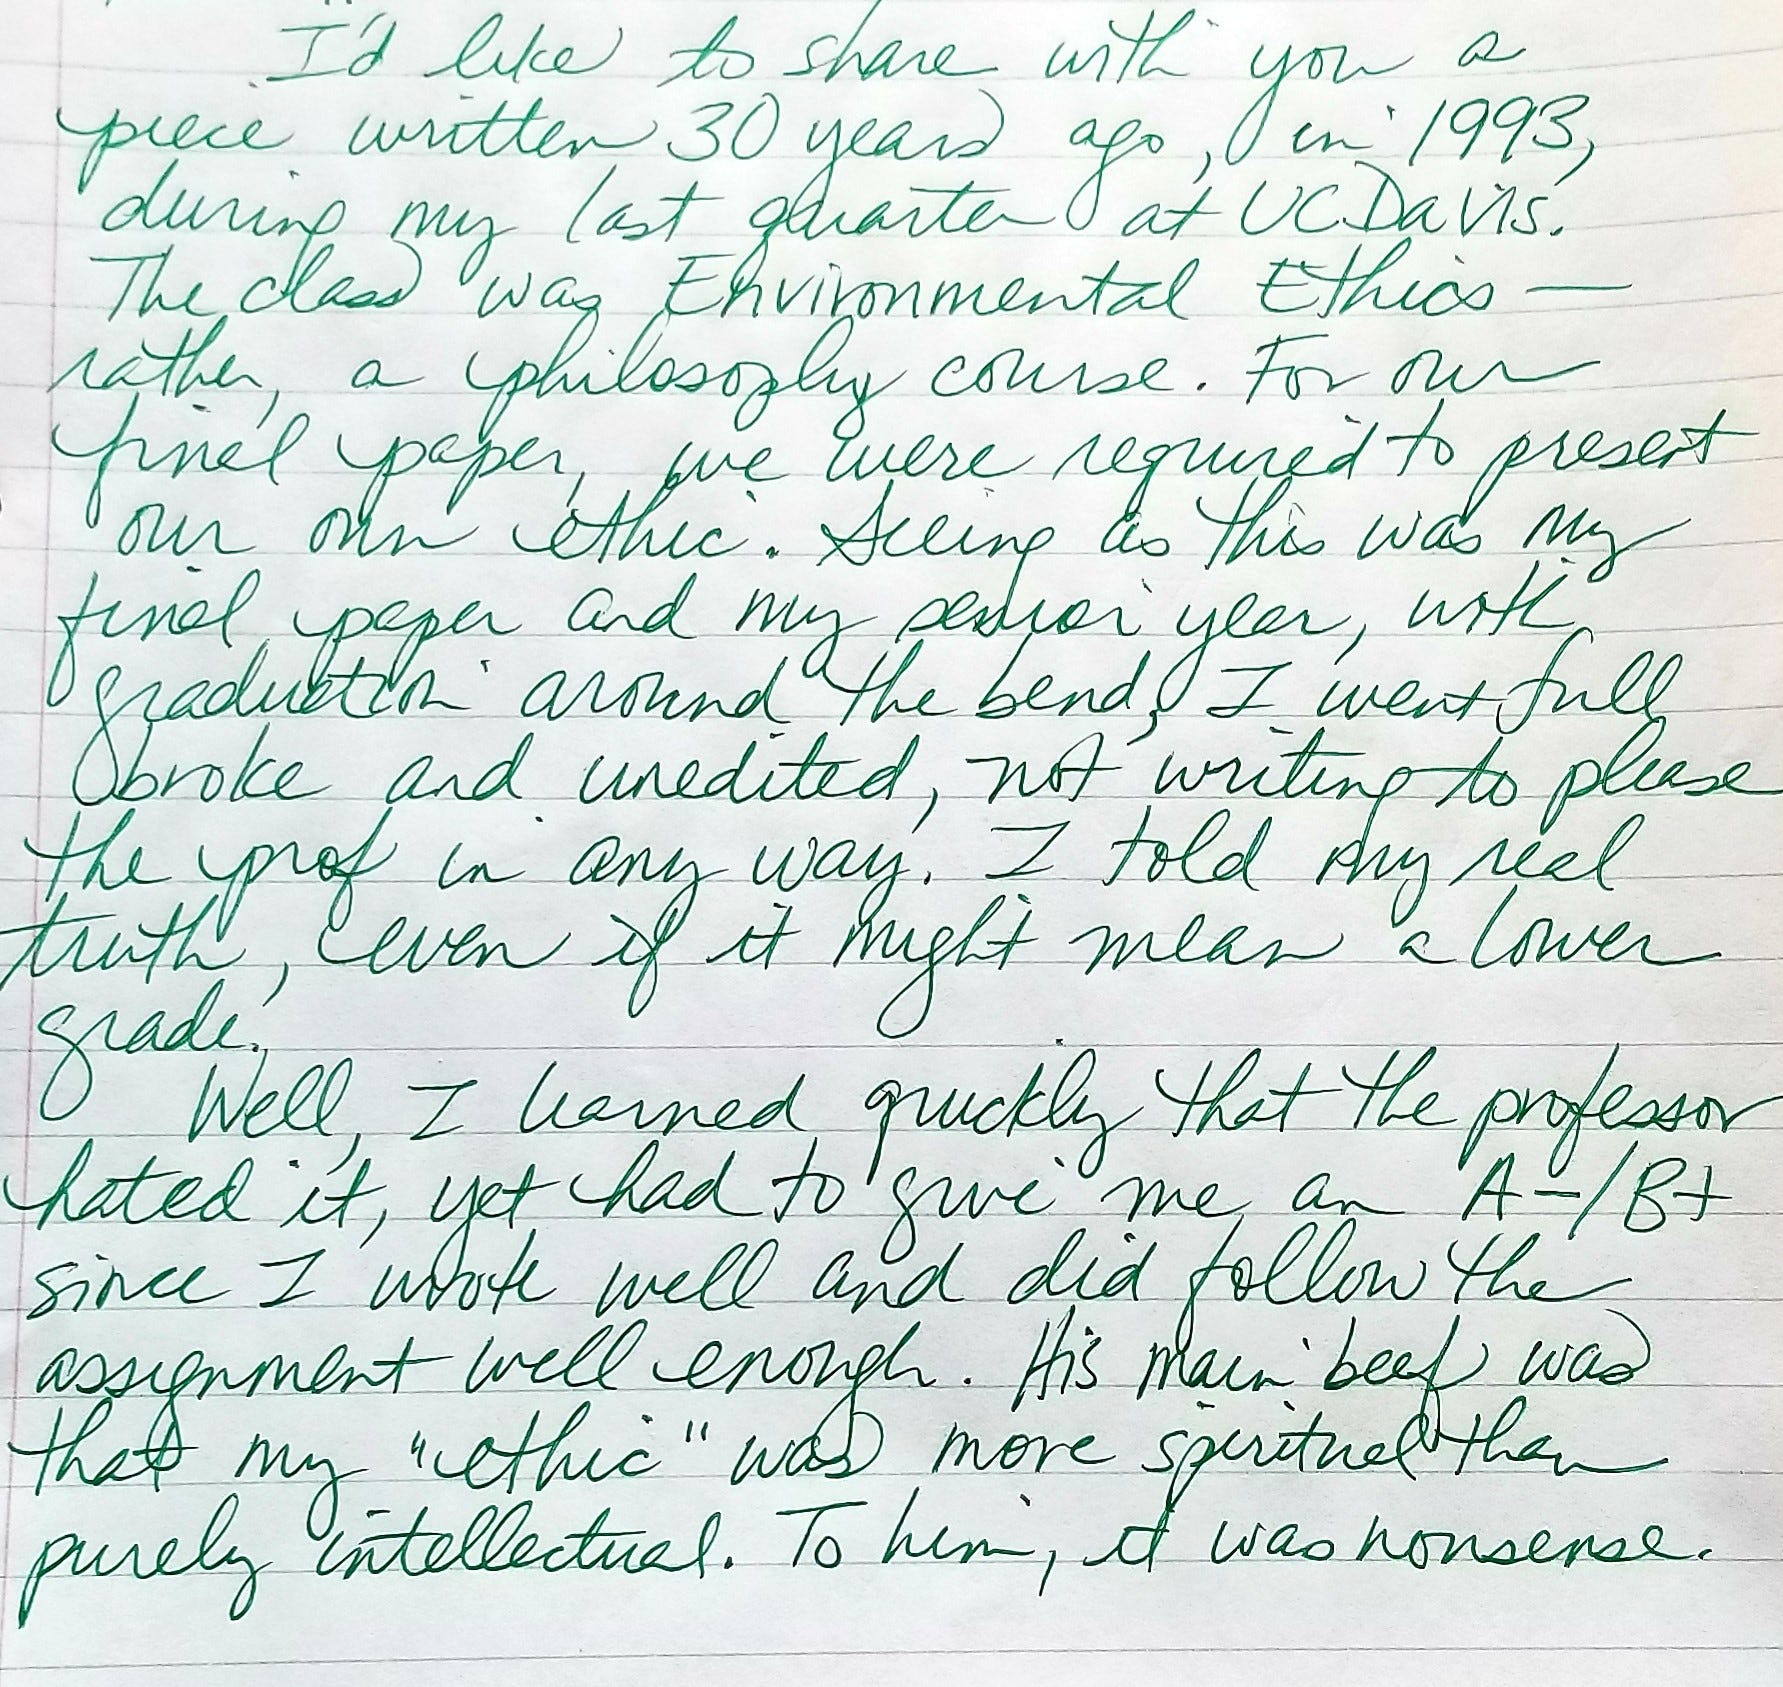 I'd like to share with you a
piece written 30 years ago, in 1993,
during my last quarter at UC Davis.
The class was Environmental Ethics —
rather, a philosophy course. For our
final paper, we were required to present
our own ethic. Seeing as this was my
final paper and my senior year, with
graduation around the bend, I went full
broke and unedited, not writing to please
the prof in any way. I told my real
truth, even if it might mean a lower
grade.
Well, I learned quickly that the professor
hated it, yet had to give me an A-/B+
since I wrote well and did follow the
assignment well enough. His main beef was
that my "ethic" was more spiritual than
purely intellectual. To him, it was nonsense.